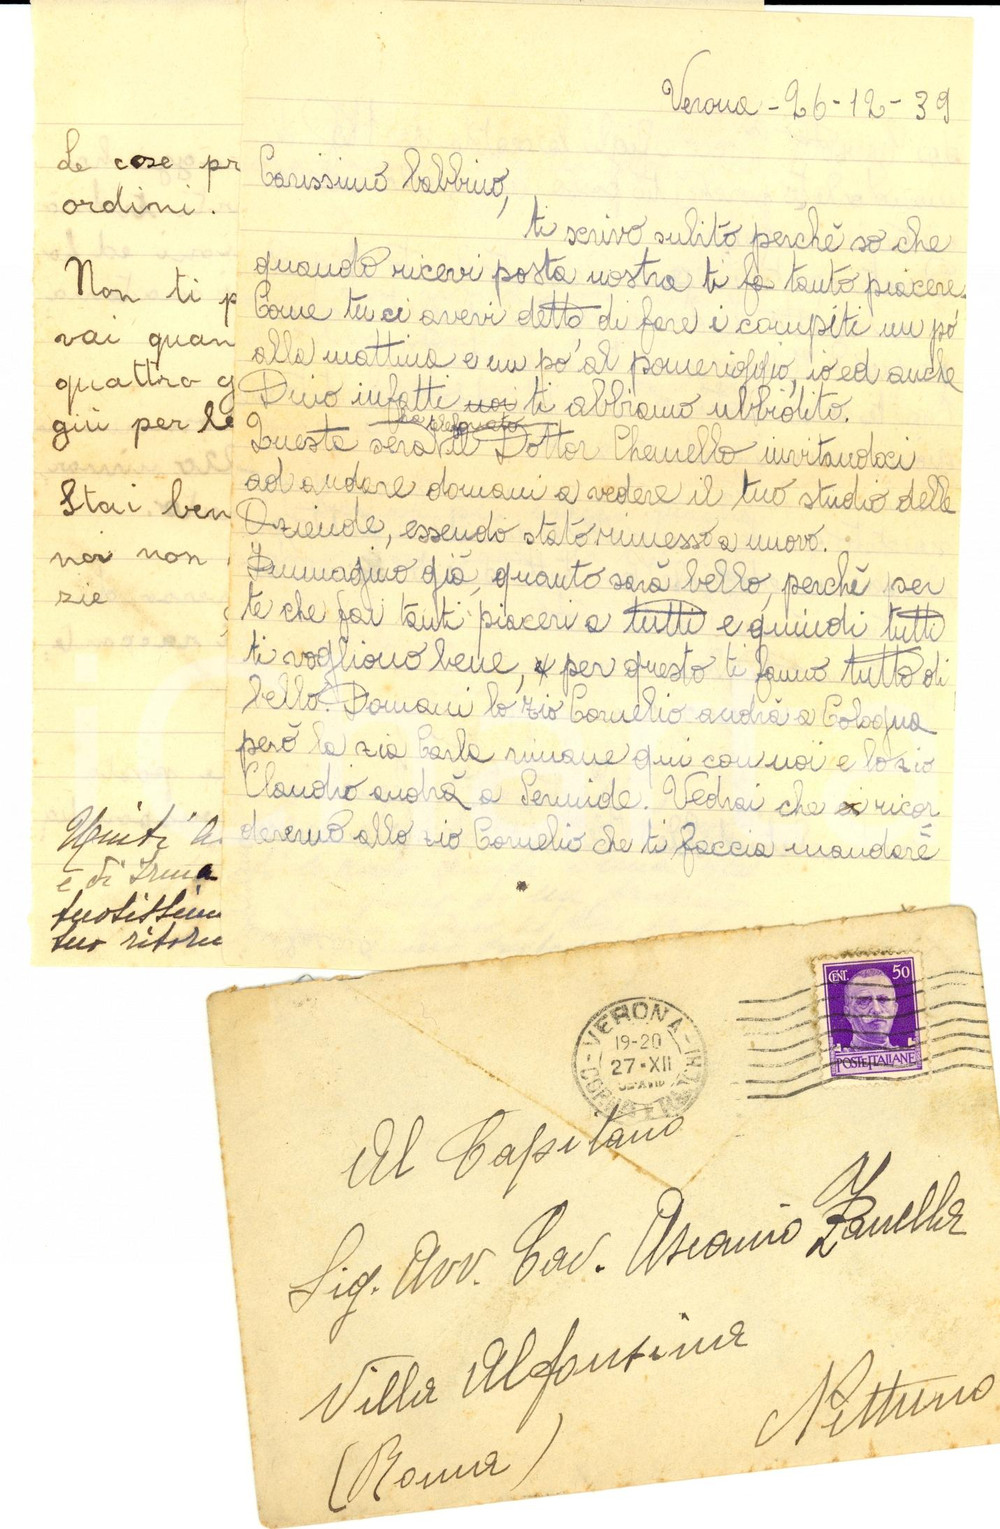 Verona - 26-12-39
Carissimo babbino,
ti scrivo subito perchè so che
quando ricevi posta nostra ti fa tanto piacere.
Come tu ci avevi detto di fare i compiti un pó
alla mattina e un po' al pomeriggio, io ed anche
Dino infatti noi ti abbiamo ubbidito.
ha telefonato
Questa sera il Dottor Chemello invitandoci
ad andare domani a vedere il tuo studio delle
Aziende, essendo stato rimesso a nuovo.
Immagino già, quanto sarà bello, perchè per
te che fai tanti piaceri a tutti e quindi tutti
ti vogliono bene, per questo ti fanno tutto di
bello. Domani lo zio Cornelio andrà a Cologna
però la zia Carla rimane qui con noi e lo zio
Claudio andrà a Sermide. Vedrai che ricor
deremo allo zio Cornelio che ti faccia mandare
Le cose pr
ordini.
Non ti p
vai quan
quattro g
giù per le
Stai ben
noi non
zie
Uniti a
e di Irma
tuo ritorn
VERONA
19-20
27·XII
CENT. 50
POSTE ITALIANE
Al Capitano
Sig. Avv. Cav. Ascanio Zanella
Villa Alfonsina
Nettuno
(Roma)